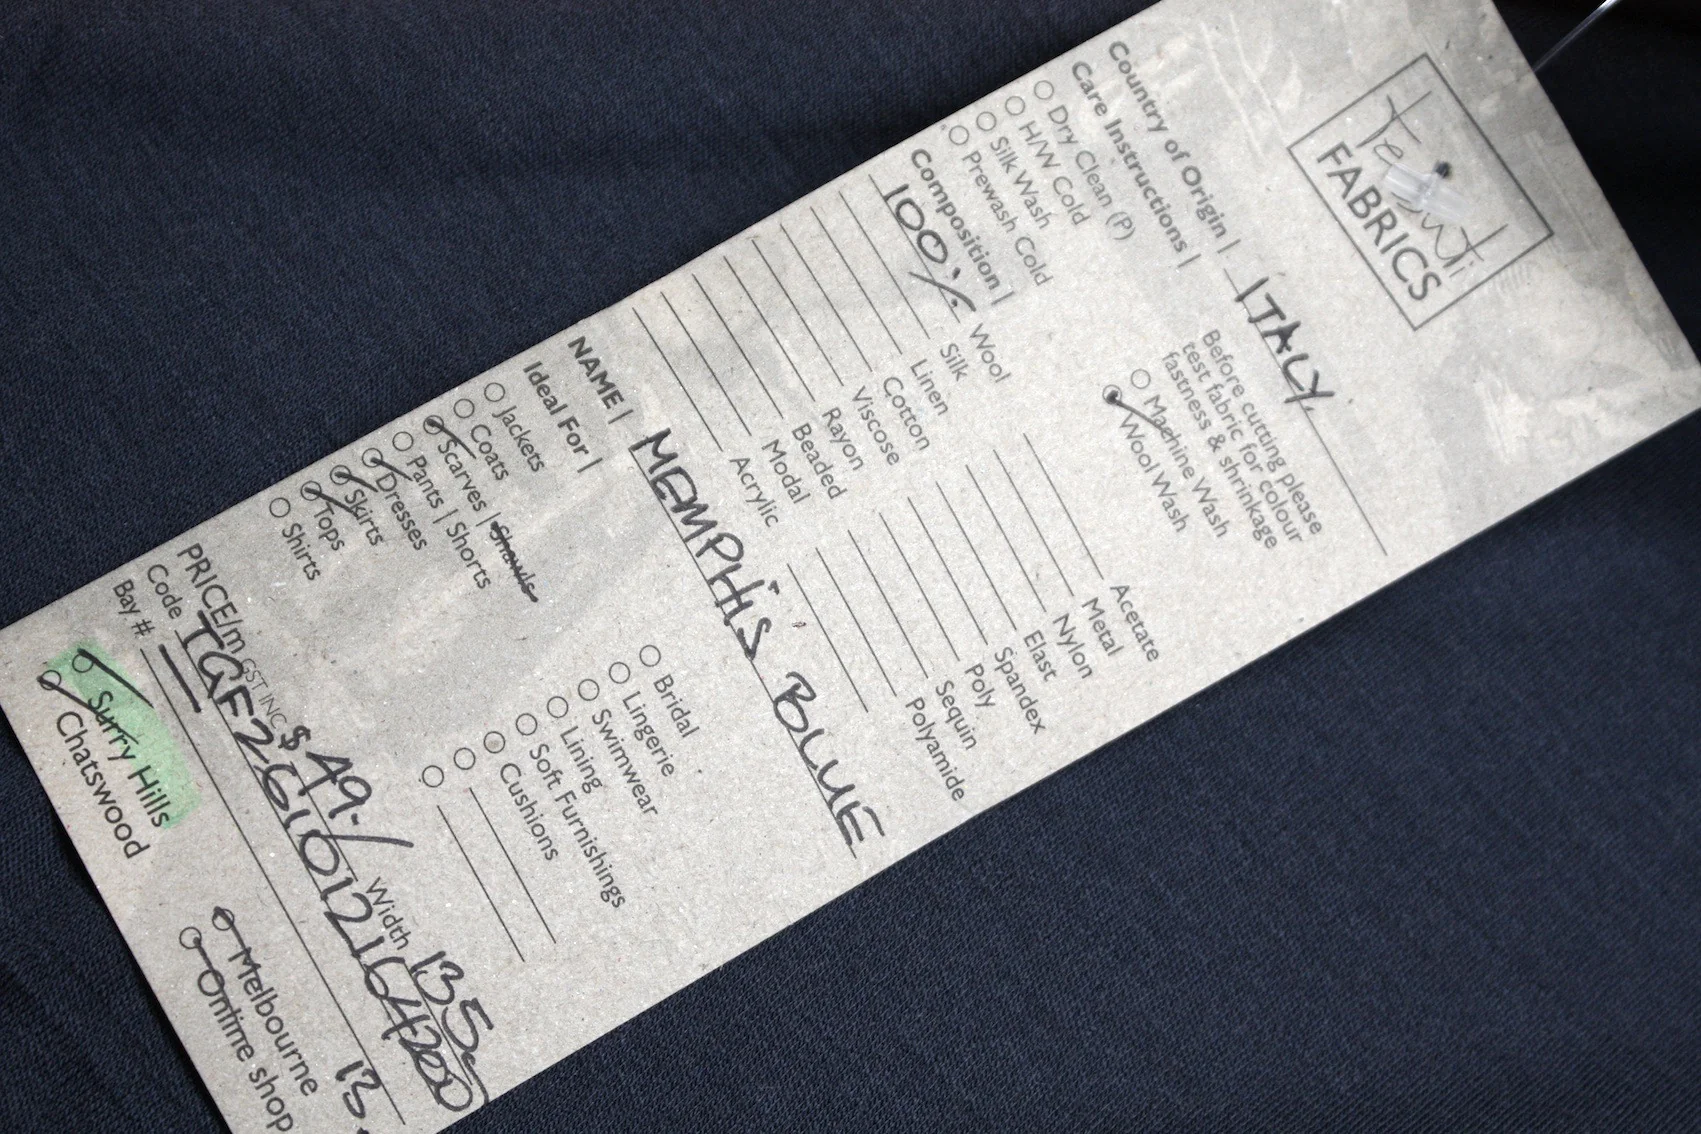 Tessuti
FABRICS
Country of Origin | ITALY.
Care Instructions |
Dry Clean (P)
H/W Cold
Silk Wash
Prewash Cold
Before cutting please
test fabric for colour
fastness & shrinkage
Machine Wash
Wool Wash
Composition |
100% Wool
Silk
Linen
Cotton
Viscose
Rayon
Beaded
Modal
Acrylic
Acetate
Metal
Nylon
Elast
Spandex
Poly
Sequin
Polyamide
NAME | MEMPHIS BLUE
Ideal For |
Jackets
Coats
Scarves | Shawls
Pants | Shorts
Dresses
Skirts
Tops
Shirts
Bridal
Lingerie
Swimwear
Lining
Soft Furnishings
Cushions
PRICE/m GST INC $49./ Width 135
Code
Bay #
Surry Hills
Chatswood
Melbourne
Online shop